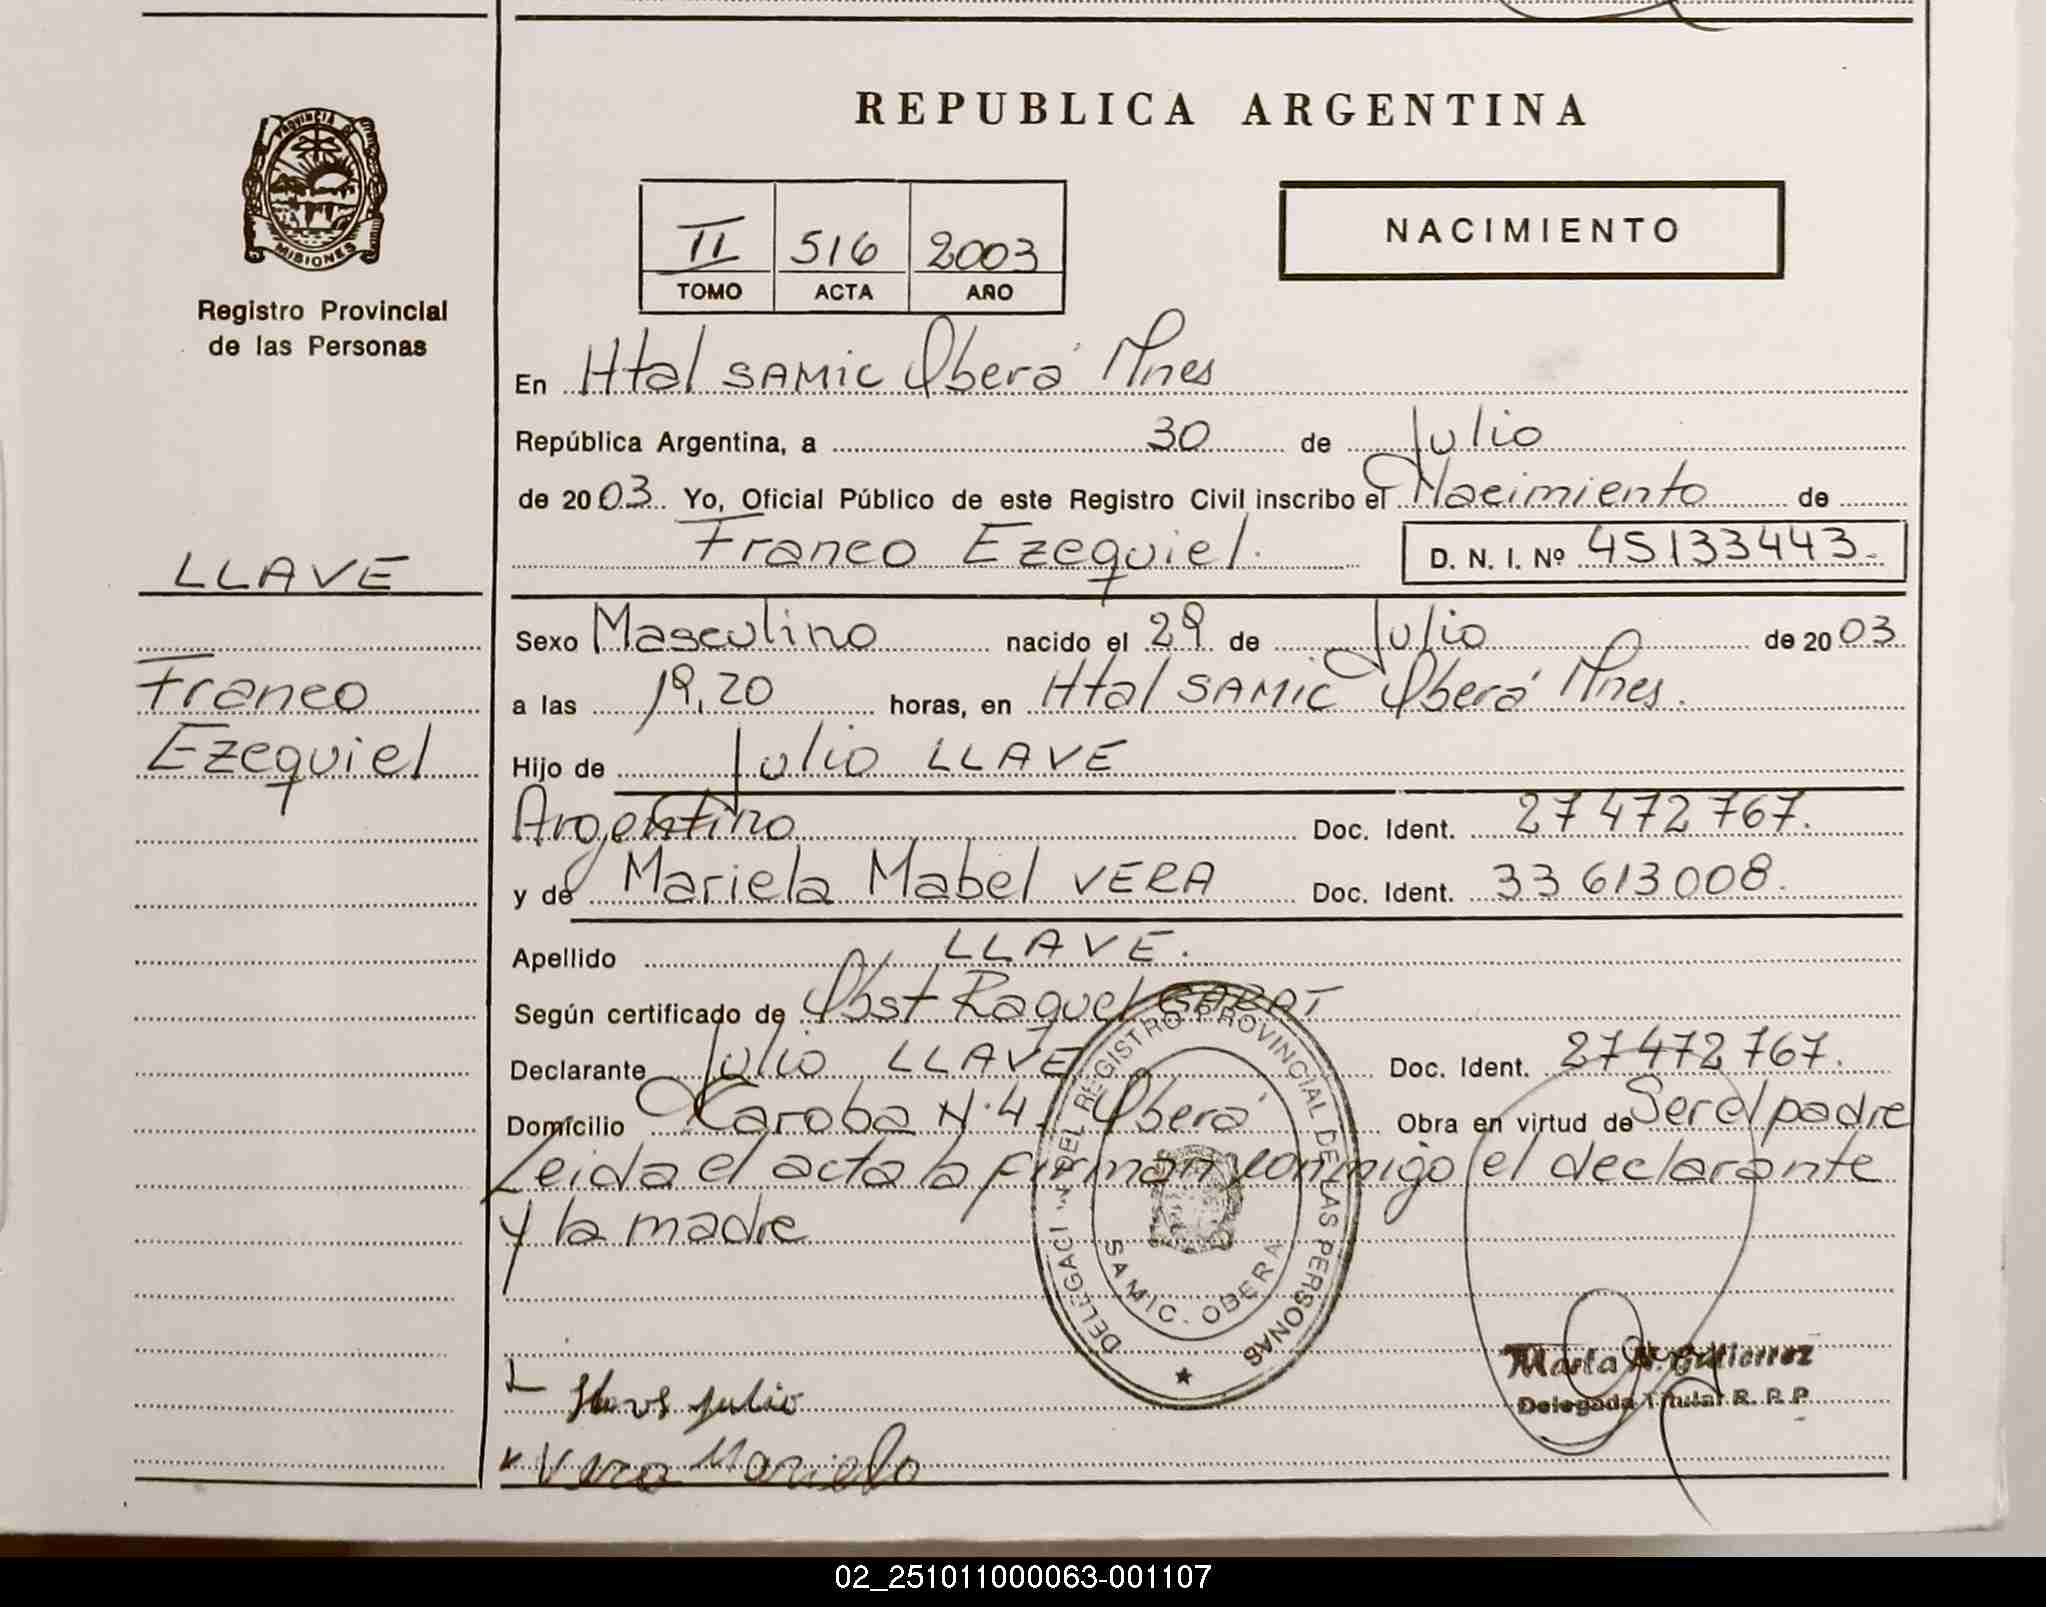 REPUBLICA ARGENTINA
PROVINCIA DE MISIONES
Registro Provincial
de las Personas
II 516 2003
TOMO ACTA AÑO
NACIMIENTO
En Htal SAMIC Oberá Mnes
República Argentina, a 30 de Julio
de 2003 Yo, Oficial Público de este Registro Civil inscribo el Nacimiento de
Franco Ezequiel. D. N. I. Nº 45133443.
LLAVE
Franco
Ezequiel
Sexo Masculino nacido el 29 de Julio de 2003
a las 19,20 horas, en Htal SAMIC Oberá Mnes.
Hijo de Julio LLAVE
Argentino Doc. Ident. 27 472 767.
y de Mariela Mabel VERA Doc. Ident. 33 613 008.
Apellido LLAVE.
Según certificado de Obst Raquel GABAT
Declarante Julio LLAVE Doc. Ident. 27 472 767.
Domicilio Caroba N·4. Oberá Obra en virtud de Ser el padre
Leida el acta la firman conmigo el declarante
y la madre
DELEGACI DEL REGISTRO PROVINCIAL DE LAS PERSONAS
SAMIC - OBERA
Marta Gutierrez
Delegada Titular R. P. P.
julio
Vera Mariela
02_251011000063-001107